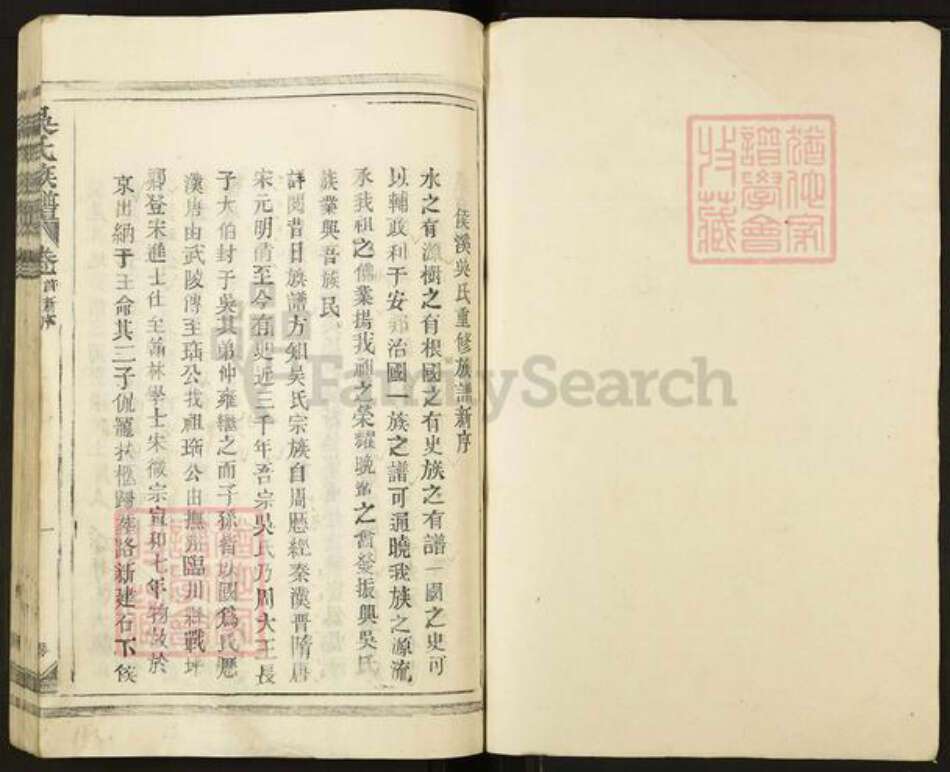 猶他家
譜學會
收藏
侯溪吳氏重修族譜新序
水之有源樹之有根國之有史族之有譜一國之史可
以輔政利于安邦治國一族之譜可通曉我族之源流
承我祖之偉業揚我祖之榮耀曉之奮發振興吳氏
族業興吾族民
詳閱昔日族譜方知吳氏宗族自周歷經秦漢晉隋唐
宋元明清至今有史近三千年吾宗吳氏乃周大王長
子太伯封于吳其弟仲雍繼之而子孫皆以國爲氏歷
漢唐由武陵傳至瑀公我祖瑀公由撫州臨川縣戰坪
鄉登宋進士仕至翰林學士宋徽宗宣和七年物故於
京出納于王命其二子侃寵扶柩歸葬路新建石下侯
吳氏族譜
卷首
新序
一
FamilySearch